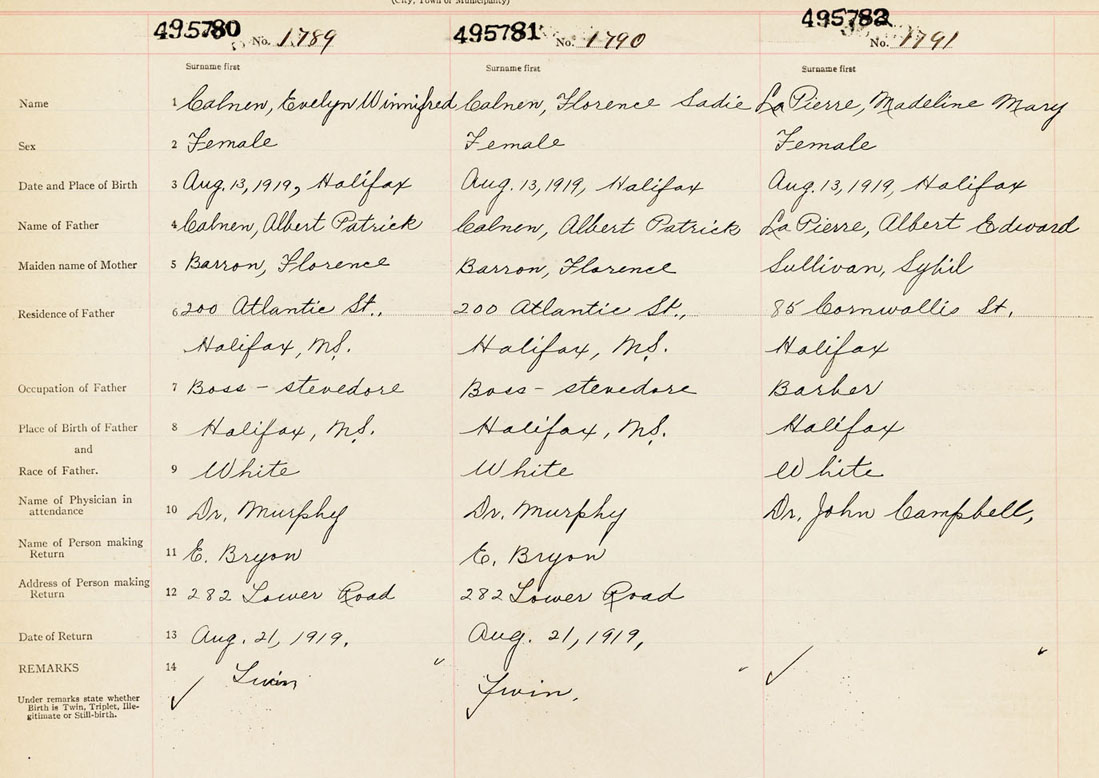 (City, Town or Municipality)
495780 No. 1789 495781 No. 1790 495782 No. 1791
Surname first Surname first Surname first
Name 1 Calnen, Evelyn Winnifred Calnen, Florence Sadie La Pierre, Madeline Mary
Sex 2 Female Female Female
Date and Place of Birth 3 Aug. 13, 1919, Halifax Aug. 13, 1919, Halifax Aug. 13, 1919, Halifax
Name of Father 4 Calnen, Albert Patrick Calnen, Albert Patrick La Pierre, Albert Edward
Maiden name of Mother 5 Barron, Florence Barron, Florence Sullivan, Sybil
Residence of Father 6 200 Atlantic St., 200 Atlantic St., 85 Cornwallis St.
Halifax, N.S. Halifax, N.S. Halifax
Occupation of Father 7 Boss - stevedore Boss - stevedore Barber
Place of Birth of Father 8 Halifax, N.S. Halifax, N.S. Halifax
and
Race of Father. 9 White White White
Name of Physician in attendance 10 Dr. Murphy Dr. Murphy Dr. John Campbell,
Name of Person making Return 11 E. Bryon E. Bryon
Address of Person making Return 12 282 Lower Road 282 Lower Road
Date of Return 13 Aug. 21, 1919. Aug. 21, 1919,
REMARKS 14 Twin Twin.
Under remarks state whether
Birth is Twin, Triplet, Ille-
gitimate or Still-birth.